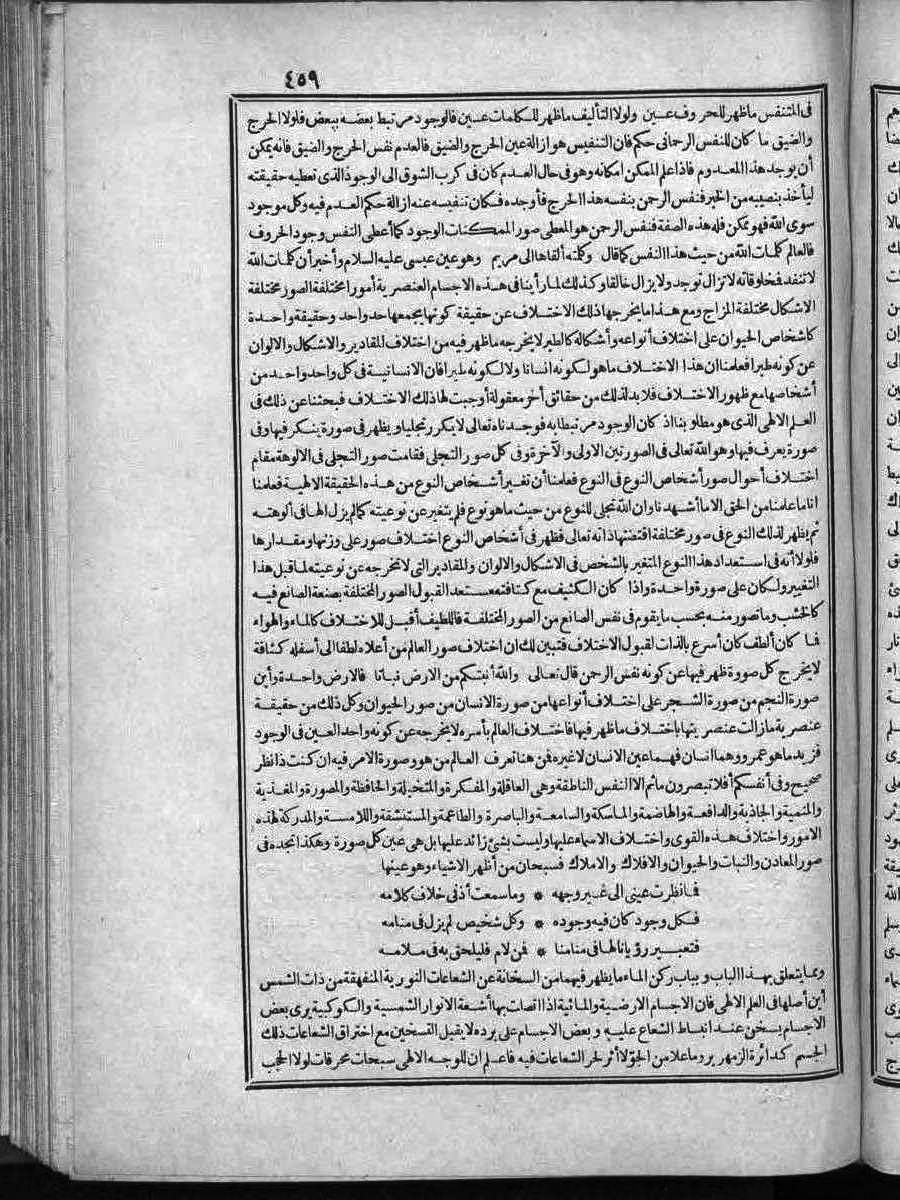 ٤٥٩
فى المتنفس ماظهر للحروف عين ولولا التأليف ماظهر للكلمات عين فالوجود مرتبط بعضه ببعض فلولا الحرج
والضيق ما كان للنفس الرحمانى حكم فان التنفيس هو ازالة عين الحرج والضيق فالعدم نفس الحرج والضيق فانه يمكن
أن يوجد هذا المعدوم فاذا علم الممكن امكانه وهو فى حال العدم كان فى كرب الشوق الى الوجود الذى تعطيه حقيقته
ليأخذ بنصيبه من الخير فنفس الرحمن بنفسه هذا الحرج فأوجده فكان تنفيسه عنه ازالة حكم العدم فيه وكل موجود
سوى الله فهو ممكن فله هذه الصفة فنفس الرحمن هو المعطى صور الممكنات الوجود كما أعطى النفس وجود الحروف
فالعالم كلمات الله من حيث هذا النفس كما قال وكلمته ألقاها الى مريم وهو عين عيسى عليه السلام وأخبر أن كلمات الله
لا تنفد فمخلوقاته لا تزال توجد ولا يزال خالقا وكذلك لما رأينا فى هذه الاجسام العنصرية أمورا مختلفة الصور مختلفة
الاشكال مختلفة المزاج ومع هذا ما يخرجها ذلك الاختلاف عن حقيقة كونها يجمعها حد واحد وحقيقة واحدة
كأشخاص الحيوان على اختلاف أنواعه وأشكاله كالطير لا يخرجه ماظهر فيه من اختلاف المقادير والاشكال والالوان
عن كونه طيرا فعلمنا ان هذا الاختلاف ماهو لكونه انسانا ولا لكونه طيرا فان الانسانية فى كل واحد واحد من
أشخاصها مع ظهور الاختلاف فلا بد لذلك من حقائق أخر معقولة أوجبت لها ذلك الاختلاف فبحثنا عن ذلك فى
العلم الالهى الذى هو مطلوبنا اذ كان الوجود مرتبطا به فوجدناه تعالى لا يكرر تجليا ويظهر فى صورة ينكر فيها وفى
صورة يعرف فيها وهو الله تعالى فى الصورتين الاولى والآخرة وفى كل صور التجلى فقامت صور التجلى فى الالوهة مقام
اختلاف أحوال صور أشخاص النوع فى النوع فعلمنا أن تغير أشخاص النوع من هذه الحقيقة الالهية فعلمنا
انا ما علمنا من الحق الا ما أشهدنا وان الله تجلى للنوع من حيث ماهو نوع فلم يتغير عن نوعيته كما لم يزل الها فى ألوهته
ثم يظهر لذلك النوع فى صور مختلفة اقتضتها ذاته تعالى فظهر فى أشخاص النوع اختلاف صور على وزنها ومقدارها
فلولا أنه فى استعداد هذا النوع المتغير بالشخص فى الاشكال والالوان والمقادير التى لا تخرجه عن نوعيته لما قبل هذا
التغيير ولكان على صورة واحدة واذا كان الكثيف مع كثافته مستعد القبول الصور المختلفة بصنعة الصانع فيه
كالخشب وما تصور منه بحسب ما يقوم فى نفس الصانع من الصور المختلفة فاللطيف أقبل للاختلاف كالماء والهواء
فما كان ألطف كان أسرع بالذات لقبول الاختلاف فتبين لك ان اختلاف صور العالم من أعلاه لطفا الى أسفله كثافة
لا يخرج كل صورة ظهر فيها عن كونه نفس الرحمن قال تعالى والله أنبتكم من الارض نباتا فالارض واحدة وأين
صورة النجم من صورة الشجر على اختلاف أنواعها من صورة الانسان من صور الحيوان وكل ذلك من حقيقة
عنصرية مازالت عنصريتها باختلاف ماظهر فيها فاختلاف العالم بأسره لا يخرجه عن كونه واحد العين فى الوجود
فزيد ماهو عمرو وهما انسان فهما عين الانسان لا غيره فمن هنا تعرف العالم من هو وصورة الامر فيه ان كنت ذا نظر
صحيح وفى أنفسكم أفلا تبصرون ماثم الا النفس الناطقة وهى العاقلة والمفكرة والمتخيلة والحافظة والمصورة والمغذية
والمنمية والجاذبة والدافعة والهاضمة والماسكة والسامعة والباصرة والطاعمة والمستنشقة واللامسة والمدركة لهذه
الامور واختلاف هذه القوى واختلاف الاسماء عليها وليست بشئ زائد عليها بل هى عين كل صورة وهكذا تجده فى
صور المعادن والنبات والحيوان والافلاك والاملاك فسبحان من أظهر الاشياء وهو عينها
فما نظرت عينى الى غير وجهه * وما سمعت أذنى خلاف كلامه
فكل وجود كان فيه وجوده * وكل شخيص لم يزل فى منامه
فتعبير رؤيانا لها فى منامنا * فمن لام فليلحق به فى ملامه
ومما يتعلق بهذا الباب وبباب ركن الماء ما يظهر فيهما من السخانة عن الشعاعات النورية المنفهقة من ذات الشمس
أين أصلها فى العلم الالهى فان الاجسام الارضية والمائية اذا اتصلت بها أشعة الانوار الشمسية والكوكبية يرى بعض
الاجسام يسخن عند انبساط الشعاع عليه وبعض الاجسام على برده لا يقبل التسخين مع اختراق الشعاعات ذلك
الجسم كدائرة الزمهرير وما علا من الجو لا أثر لحر الشعاعات فيه فاعلم ان للوجه الالهى سبحات محرقات لولا الحجب